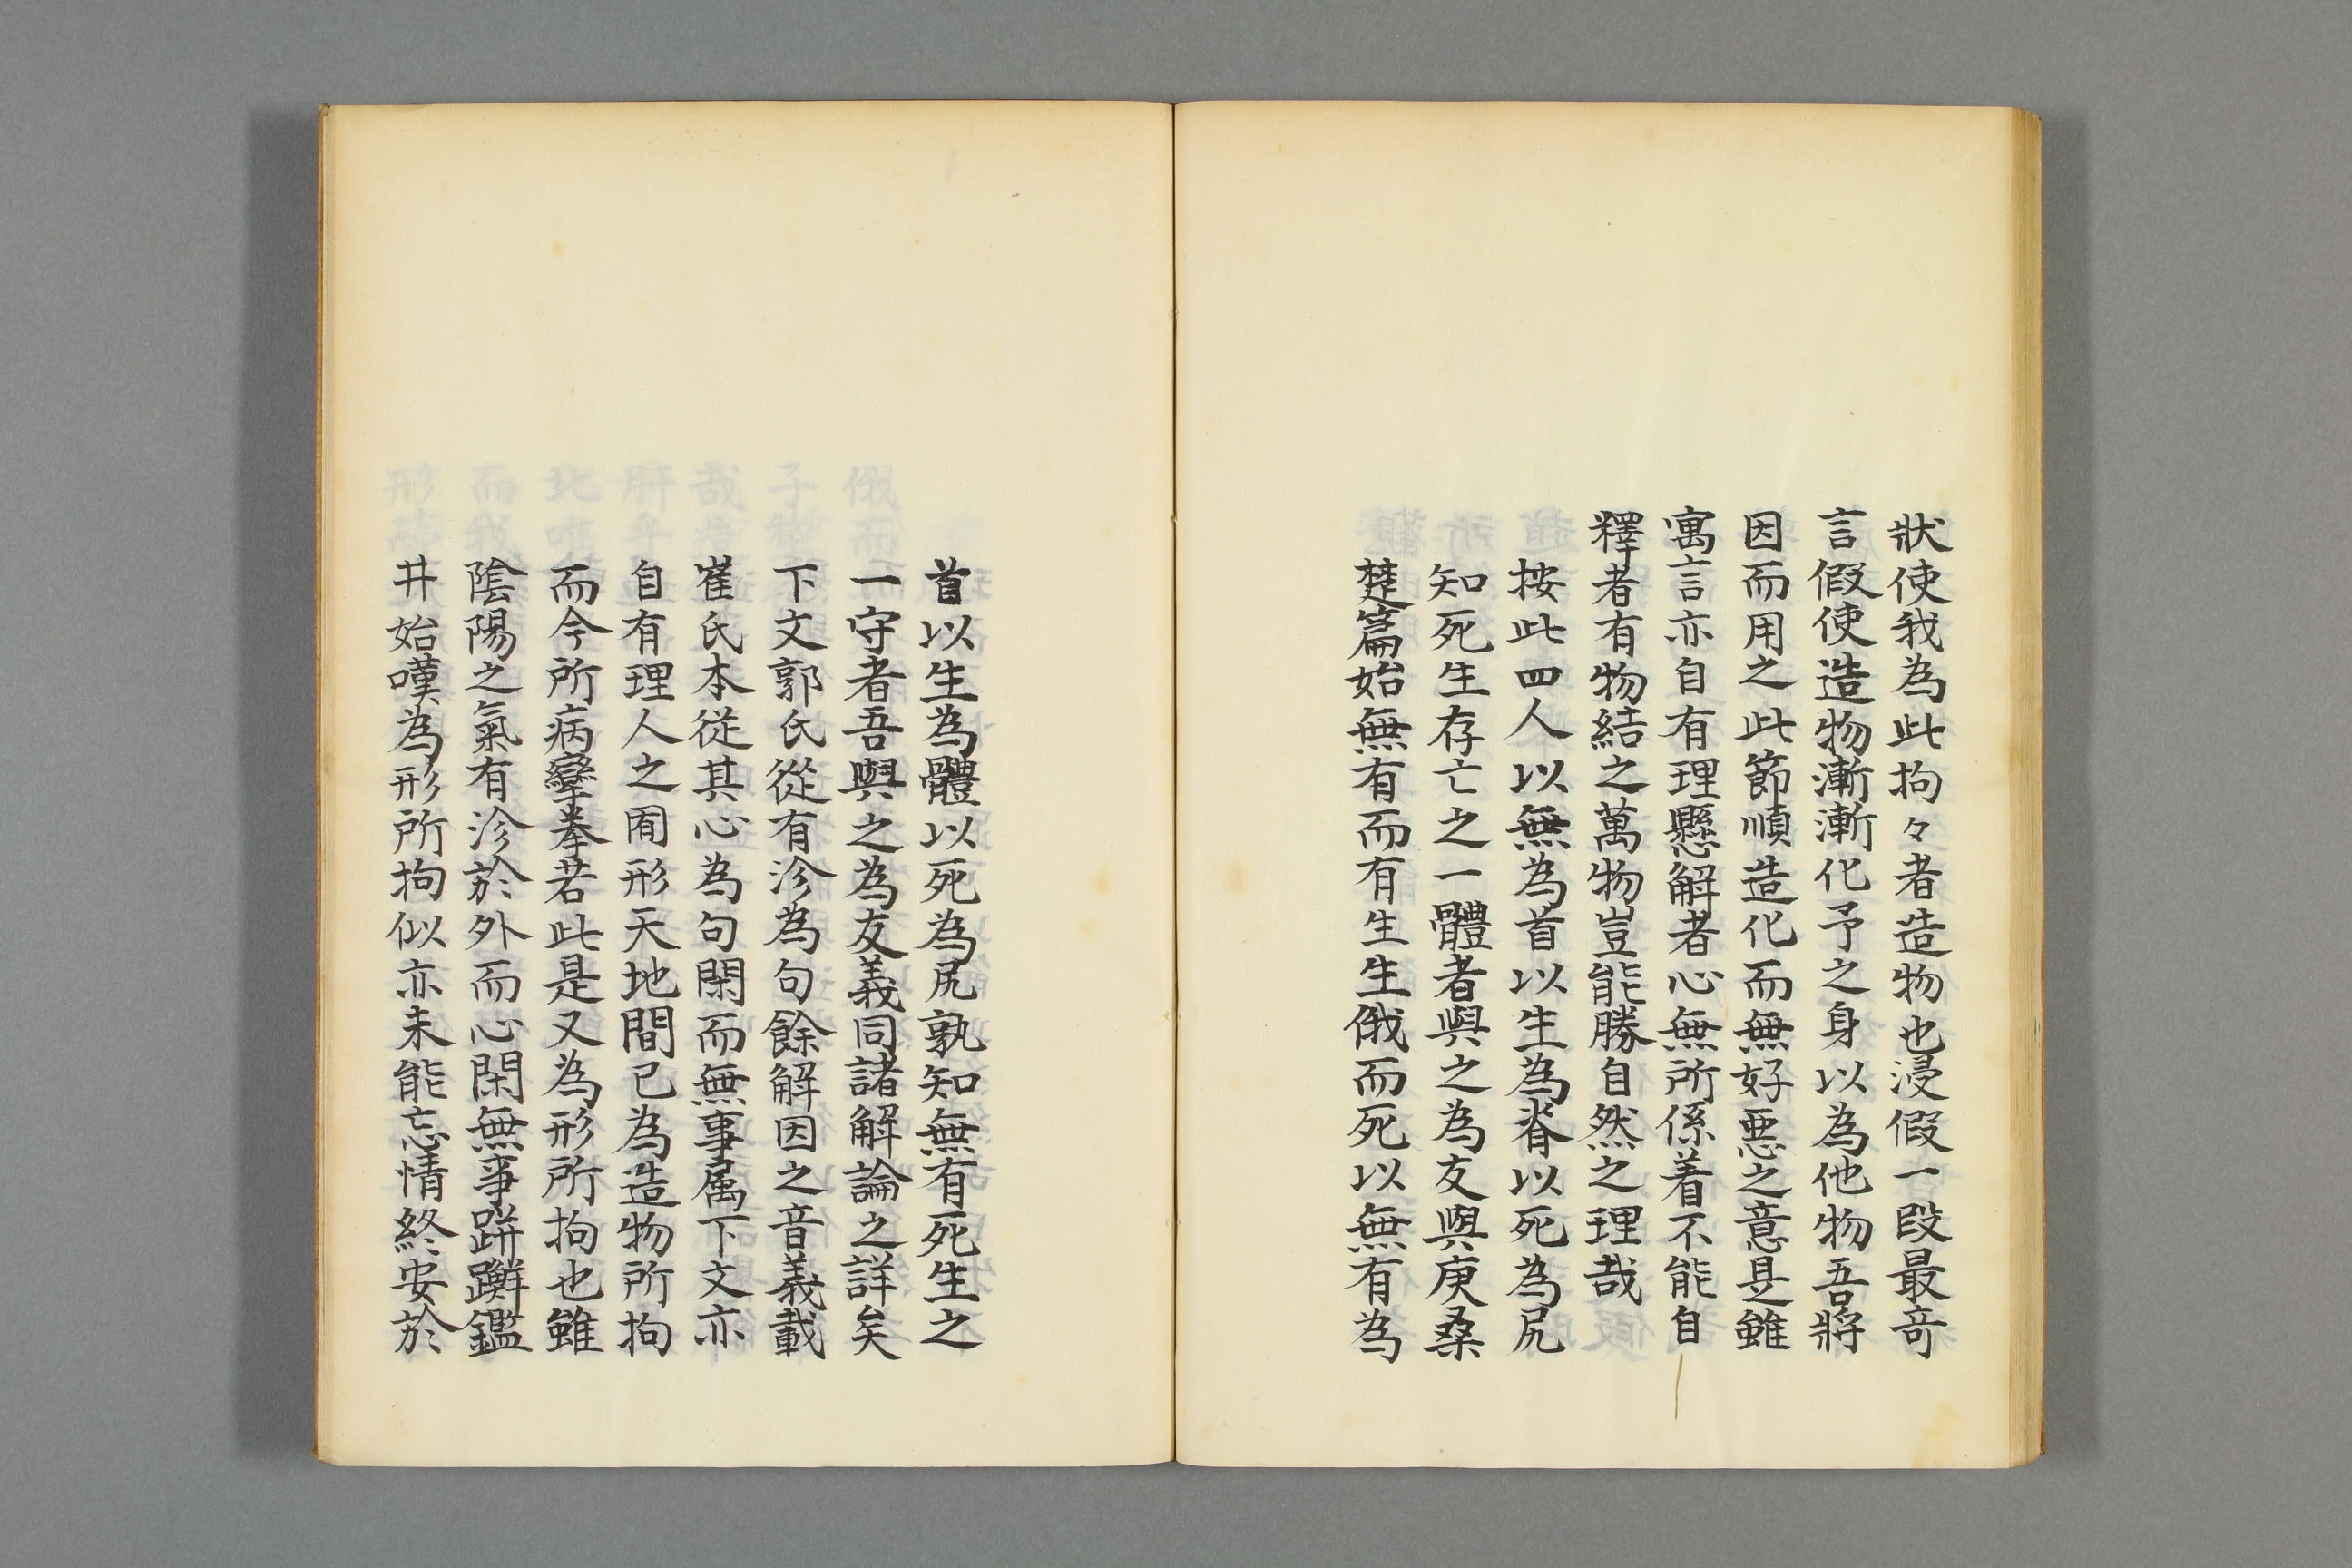 狀使我為此拘々者造物也浸假一段最奇
言假使造物漸漸化予之身以為他物吾將
因而用之此節順造化而無好悪之意是雖
寓言亦自有理懸解者心無所係着不能自
釋者有物結之萬物豈能勝自然之理哉
按此四人以無為首以生為脊以死為尻
知死生存亡之一體者與之為友與庚桑
楚篇始無有而有生生俄而死以無有為
首以生為體以死為尻孰知無有死生之
一守者吾與之為友義同諸解論之詳矣
下文郭氏從有沴為句餘解因之音義載
崔氏本從其心為句閑而無事属下文亦
自有理人之囿形天地間已為造物所拘
而今所病攣拳若此是又為形所拘也雖
陰陽之氣有沴於外而心閑無事跰𨇤鑑
井始嘆為形所拘似亦未能忘情終安於